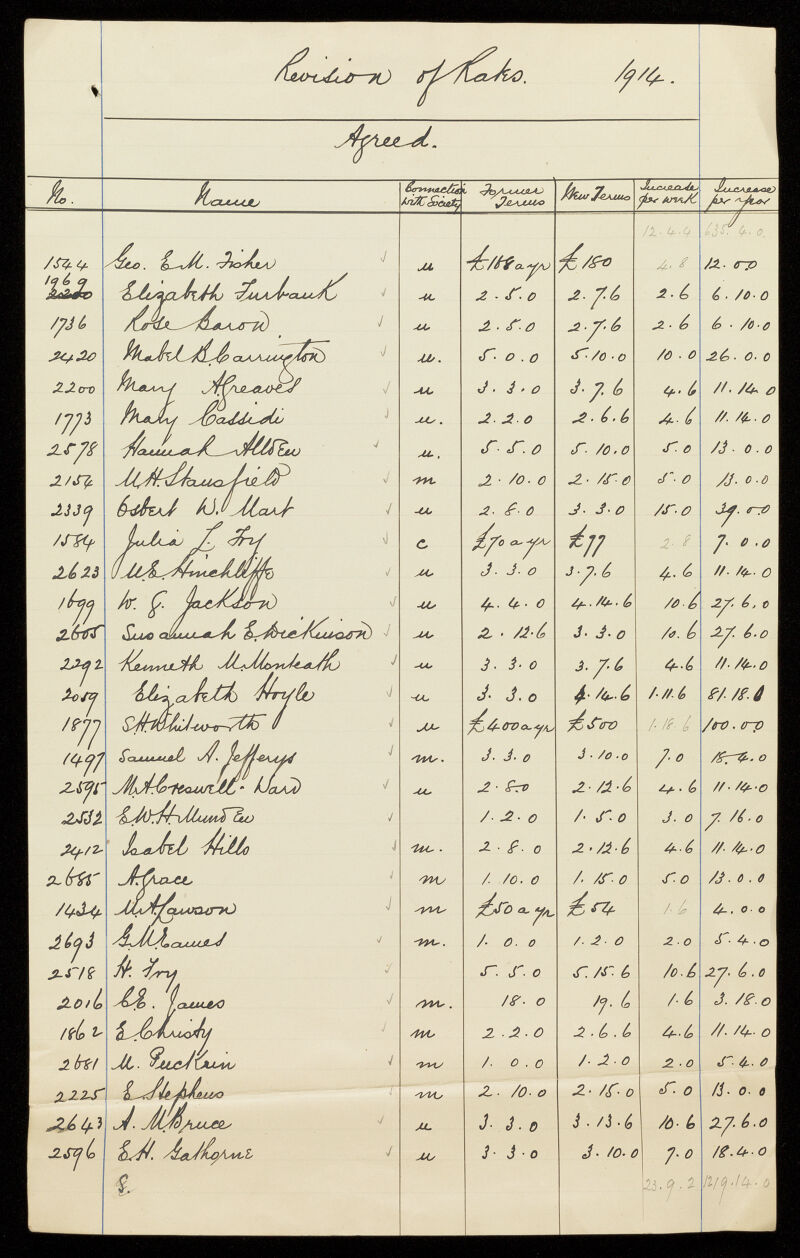 Revision of Rates. 1914.
Agreed.
No. Name Connection with Society Former Terms New Terms Increase per week Increase per year
12.4.4 635.4.0
1544 Geo. E. M. Fisher ✓ u £168 a yr £180 4.8 12.0.0
1969 2200 Elizabeth Furbank ✓ u 2.5.0 2.7.6 2.6 6.10.0
1736 Rose Baron ✓ u 2.5.0 2.7.6 2.6 6.10.0
2420 Mabel B. Carrington ✓ u. 5.0.0 5.10.0 10.0 26.0.0
2200 Mary A Greaves ✓ u 3.3.0 3.7.6 4.6 11.14.0
1773 Mary Cassidi ✓ u. 2.2.0 2.6.6 4.6 11.14.0
2578 Hannah Allden ✓ u. 5.5.0 5.10.0 5.0 13.0.0
2154 M.H. Stansfield ✓ m 2.10.0 2.15.0 5.0 13.0.0
2339 Osbert W. Mart ✓ u 2.8.0 3.3.0 15.0 39.0.0
1584 Julia L. Fry ✓ c £70 a yr £77 2.8 7.0.0
2623 M.E. Hinchliffe ✓ u 3.3.0 3.7.6 4.6 11.14.0
1699 W. J. Jackson ✓ u 4.4.0 4.14.6 10.6 27.6.0
2605 Susannah E. Dickinson ✓ u 2.12.6 3.3.0 10.6 27.6.0
2292 Kenneth M. Monteath ✓ u 3.3.0 3.7.6 4.6 11.14.0
2059 Elizabeth Hoyle ✓ u 3.3.0 4.14.6 1.11.6 81.18.0
1877 S.H. Whitworth ✓ u £400 a yr £500 1.18.6 100.0.0
1497 Samuel A. Jefferys ✓ m. 3.3.0 3.10.0 7.0 18.4.0
2595 M.A. Creswell-Ward ✓ u 2.8.0 2.12.6 4.6 11.14.0
2532 E.W.H. Munden ✓ 1.2.0 1.5.0 3.0 7.16.0
2412 Isabel Hills ✓ m. 2.8.0 2.12.6 4.6 11.14.0
2685 A. Grace ✓ m 1.10.0 1.15.0 5.0 13.0.0
1434 M.A. Lawson ✓ m £50 a yr £54 1.6 4.0.0
2693 G.M. Eames ✓ m. 1.0.0 1.2.0 2.0 5.4.0
2518 H. Fry ✓ 5.5.0 5.15.6 10.6 27.6.0
2016 C.E. James ✓ m. 18.0 19.6 1.6 3.18.0
1862 E. Christy ✓ m 2.2.0 2.6.6 4.6 11.14.0
2681 M. Puckrin ✓ m 1.0.0 1.2.0 2.0 5.4.0
2225 E Stephens ✓ m 2.10.0 2.15.0 5.0 13.0.0
2643 A. M Bruce ✓ u 3.3.0 3.13.6 10.6 27.6.0
2596 E.H. Gathorne ✓ u 3.3.0 3.10.0 7.0 18.4.0
23.9.2 1219.14.0